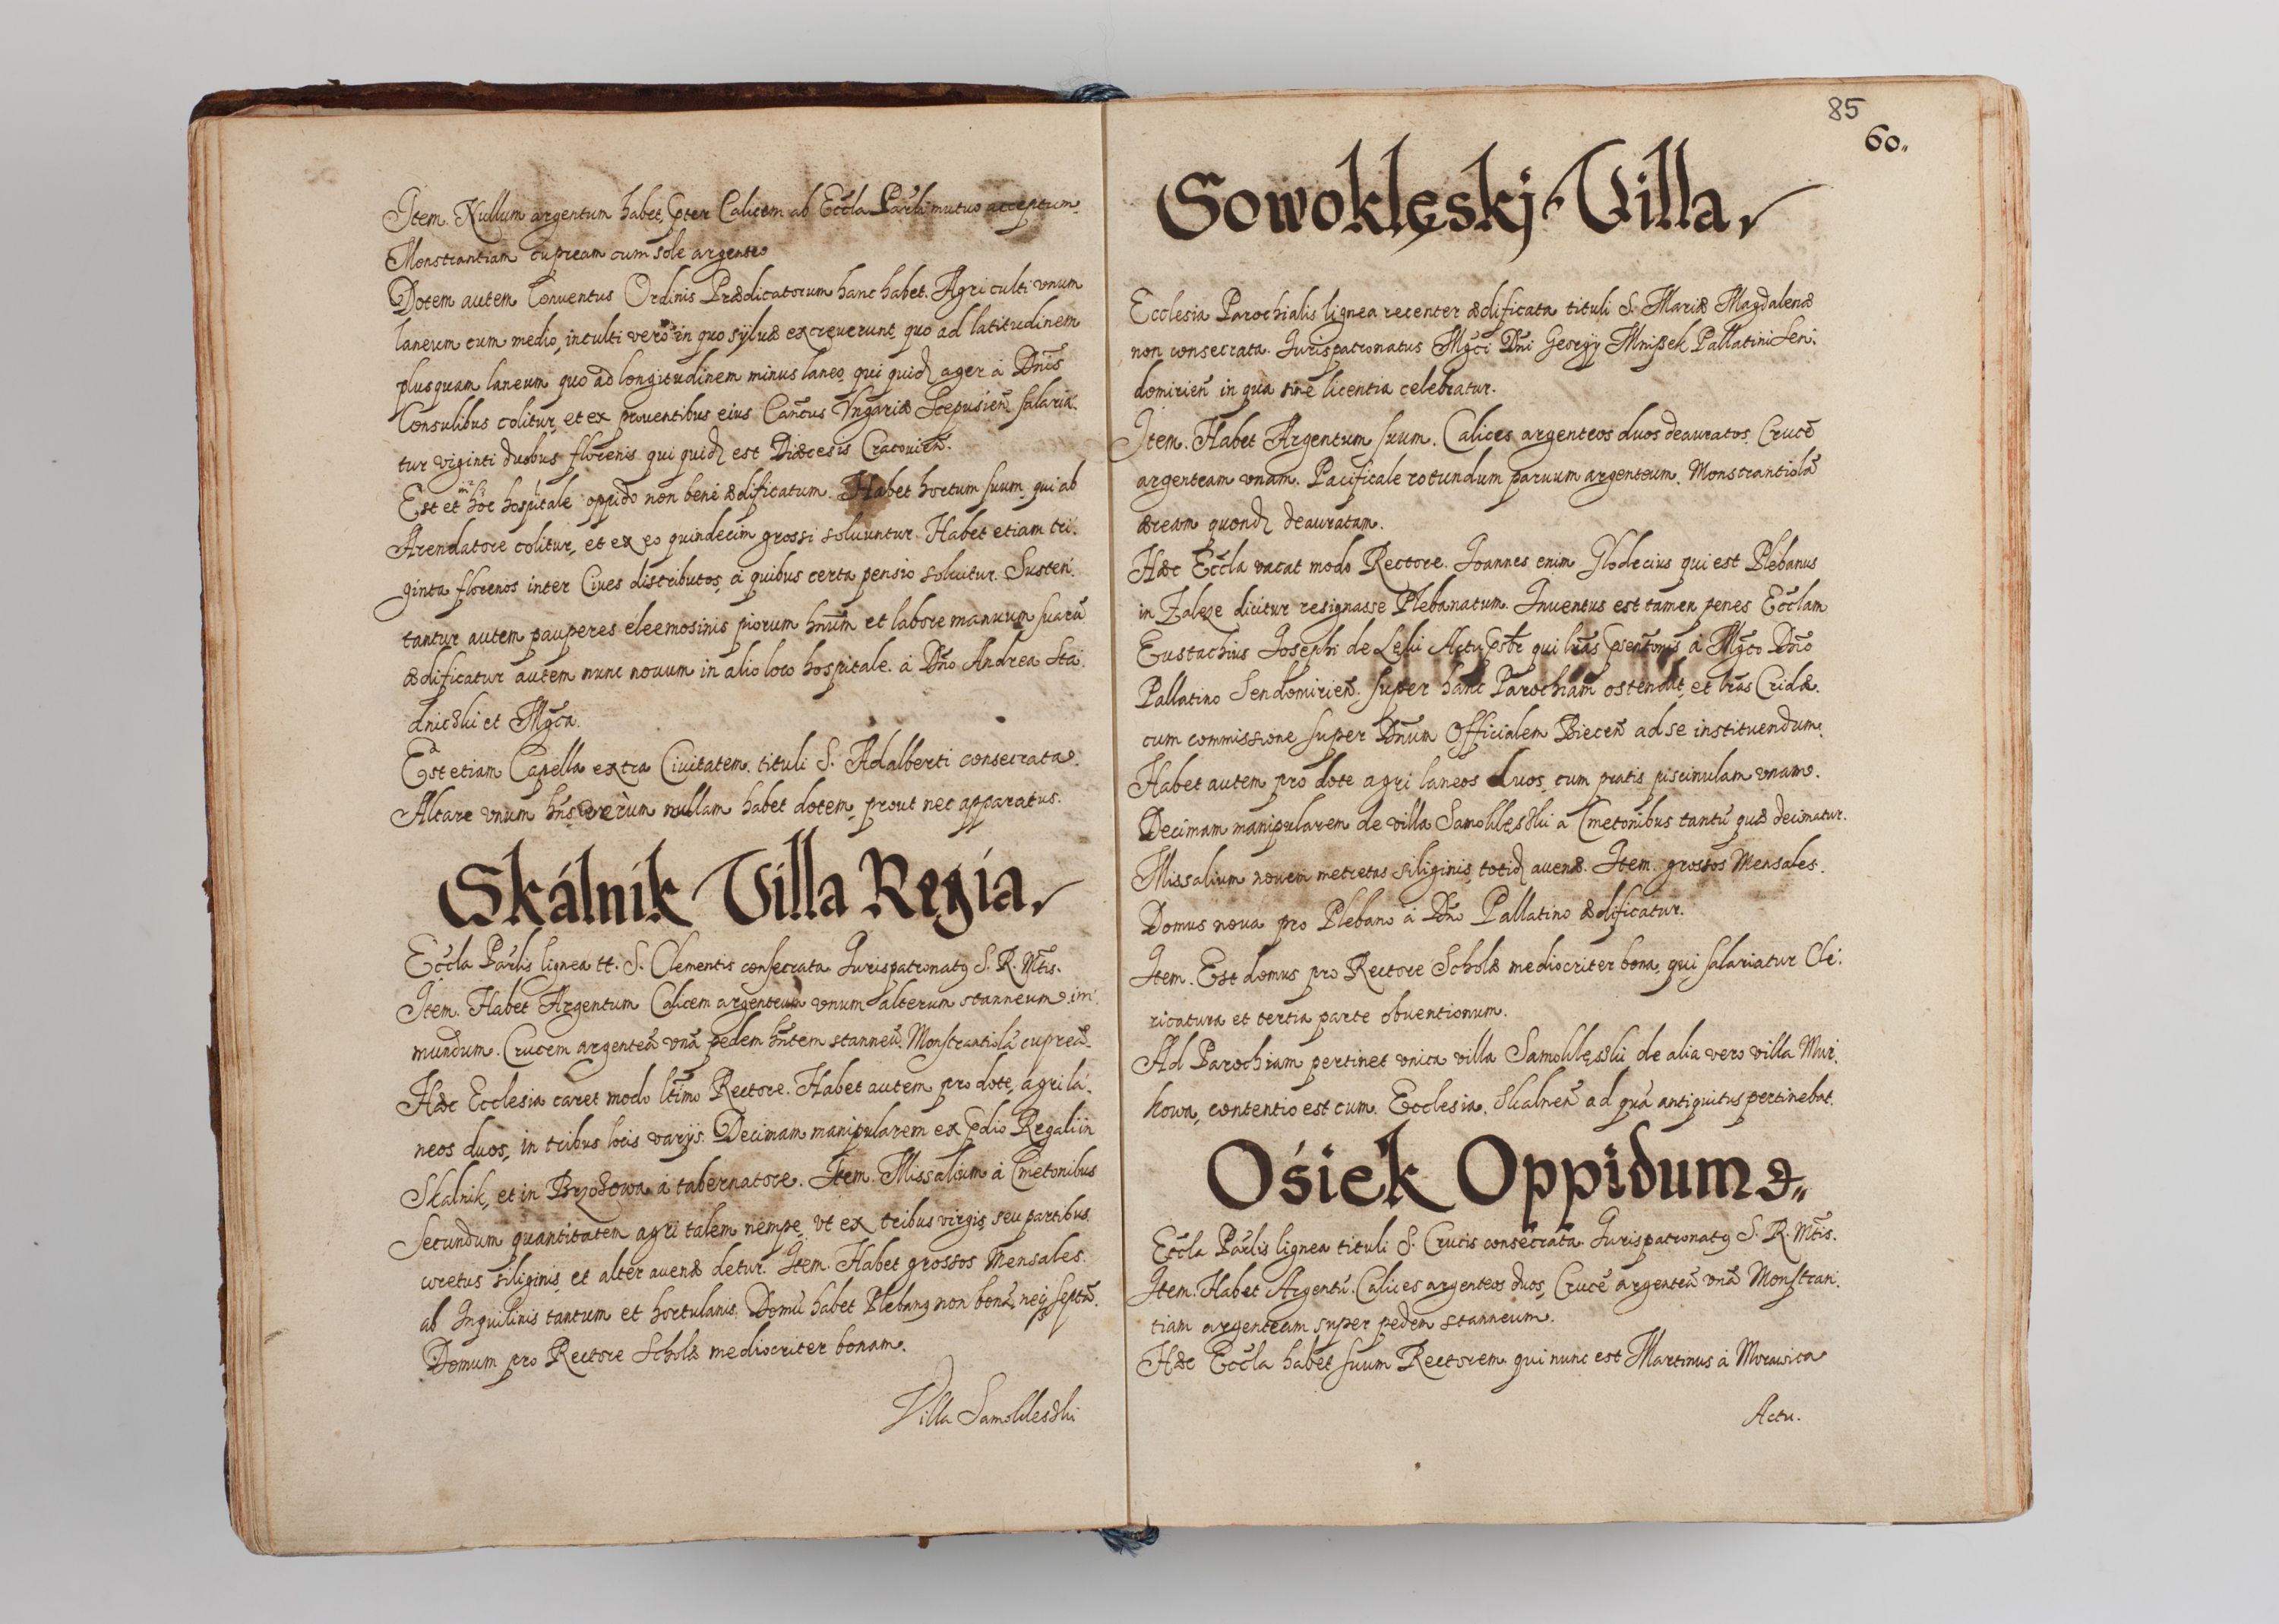 Item. Nullum argentum habet, pter Calicem ab Eccla Parli mutuo acceptum.
Monstrantiam cupream cum sole argenteo
Dotem autem Conuentus Ordinis Prædicatorum hanc habet. Agri culti vnum
laneum cum medio, inculti vero in quo syluæ excreuerunt, quo ad latitudinem
plusquam laneum quo ad longitudinem minus laneo, qui quid ager à Dnis
Consulibus colitur, et ex prouentibus eius Cancus Vngariæ Scepusien salaria:
tur viginti duobus florenis. qui quid est Diæcesis Cracouien.
Est et in hoc hospitale oppido non bene ædificatum. Habet hortum suum, qui ab
Arendatore colitur, et ex eo quindecim grossi soluuntur. Habet etiam tri:
ginta florenos inter Ciues distributos, à quibus certa pensio soluitur. Susten:
tantur autem pauperes eleemosinis piorum hnum et labore manuum suarũ
ædificatur autem nunc nouum in alio loco hospitale. à Dno Andrea Sta:
dnicski et Mgca.
Est etiam Capella extra Ciuitatem. tituli S. Adalberti consecrata.
Altare vnum hns verùm nullam habet dotem, prout nec apparatus.
Skálnik Villa Regia,
Eccla Parlis lignea tt. S. Clementis consecrata Jurispatronatg S. R. Mtis.
Item. Habet Argentum Calicem argenteum vnum alterum stanneum im:
mundum. Crucem argenteã vnã pedem hntem stanneũ. Monstrantiolã cupreã.
Hæc Ecclesia caret modo ltimo Rectore. Habet autem pro dote, agri la:
neos duos, in tribus locis varijs. Decimam manipularem ex pdio Regali in
Skalnik, et in Brzozowa à tabernatore. Item. Missalium à Cmetonibus
secundum quantitatem agri talem nempe, vt ex tribus virgis seu partibus
coretus siliginis, et alter auenæ detur. Item. Habet grossos Mensales.
ab Inquilinis tantum et hortulanis. Domũ habet Plebang non bonã, neq septã.
Domum pro Rectore Scholæ mediocriter bonam.
Villa Samoklesski
85
60.
Sowoklęskj Villa,
Ecclesia Parochialis lignea recenter ædificata tituli S. Mariæ Magdalenæ
non consecrata. Jurispatronatus Mgci Dni Georgij Mnißek Pallatini Sen:
domirien in qua sine licentia celebratur.
Item. Habet Argentum suum. Calices argenteos duos deauratos. Crucẽ
argenteam vnam. Pacificale rotundum paruum argenteum. Monstrantiolã
æream quond deauratam.
Hæc Eccla vacat modo Rectore. Joannes enim Glodecius qui est Plebanus
in Zalęże dicitur resignasse Plebanatum. Inuentus est tamen penes Ecclam
Eustachius Josephi de Leski Actu pstr qui lras psentonis à Mgco Dno
Pallatino Sendomirien. super hanc Parochiam ostendit, et lras Cridæ.
cum commissione super Dnum Officialem Biecen ad se instituendum.
Habet autem pro dote agri laneos duos, cum pratis piscinulam vnam.
Decimam manipularem de villa Samoklęski à Cmetonibus tantũ quæ decimatur.
Missalium nouem metretas siliginis, totid auenæ. Item. grossos Mensales.
Domus noua pro Plebano à Dno Pallatino ædificatur.
Item. Est domus pro Rectore Scholæ mediocriter bona, qui salariatur Cle:
ricatura et tertia parte obuentionum.
Ad Parochiam pertinet vnica villa Samoklęski de alia vero villa Mŭr:
kowa, contentio est cum Ecclesia Skalnen ad quã antiquitus pertinebat.
Ośiek Oppidum
Eccla Parlis lignea tituli S. Crucis consecrata. Jurispatronatg S. R. Mtis.
Item. Habet Argentũ. Calices argenteos duos, Crucẽ argenteã vnã Monstran:
tiam argenteam super pedem stanneum.
Hæc Eccla habet suum Rectorem qui nunc est Martinus à Morawica
Actu.